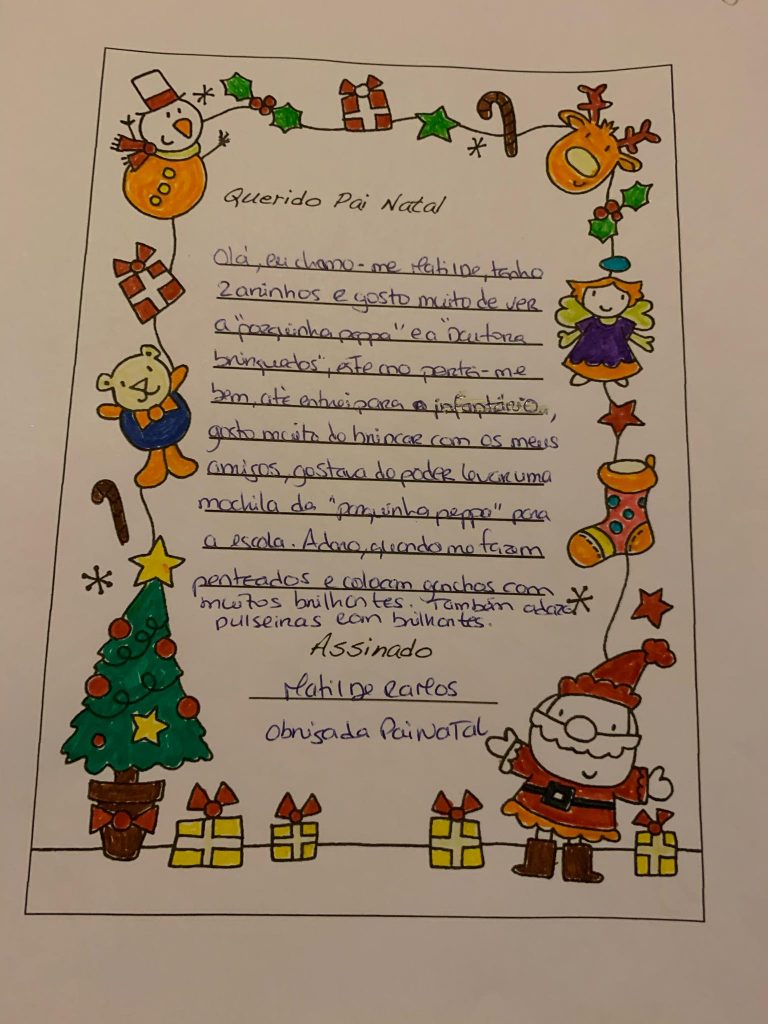 Querido Pai Natal
Olá, eu chamo-me Matilde, tenho
2 aninhos e gosto muito de ver
a "porquinha peppa" e a "Doutora
brinquedos", este ano portei-me
bem, até entrei para o infantário,
gosto muito de brincar com os meus
amigos, gostava de poder levar uma
mochila da "porquinha peppa" para
a escola. Adoro, quando me fazem
penteados e colocam ganchos com
muitos brilhantes. Também adoro
pulseiras com brilhantes.
Assinado
Matilde Carlos
Obrigada Pai Natal